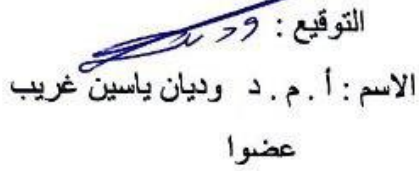 التوقيع :
الاسم : أ . م . د وديان ياسين غريب
عضوا